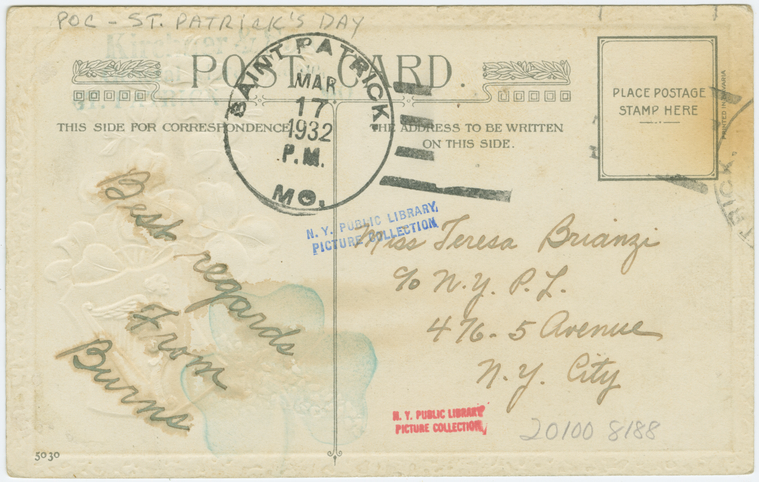 POC - ST. PATRICK'S DAY
POST CARD
SAINT PATRICK,
MAR
17
1932
P.M.
MO.
PLACE POSTAGE
STAMP HERE
PRINTED IN BAVARIA
THIS SIDE FOR CORRESPONDENCE
THE ADDRESS TO BE WRITTEN
ON THIS SIDE.
TRICK,
N. Y. PUBLIC LIBRARY,
PICTURE COLLECTION
Best regards
From
Burns
Miss Teresa Brianzi
c/o N.Y. P. L.
476 - 5 Avenue
N. Y. City
N. Y. PUBLIC LIBRARY
PICTURE COLLECTION
20100 8188
5030